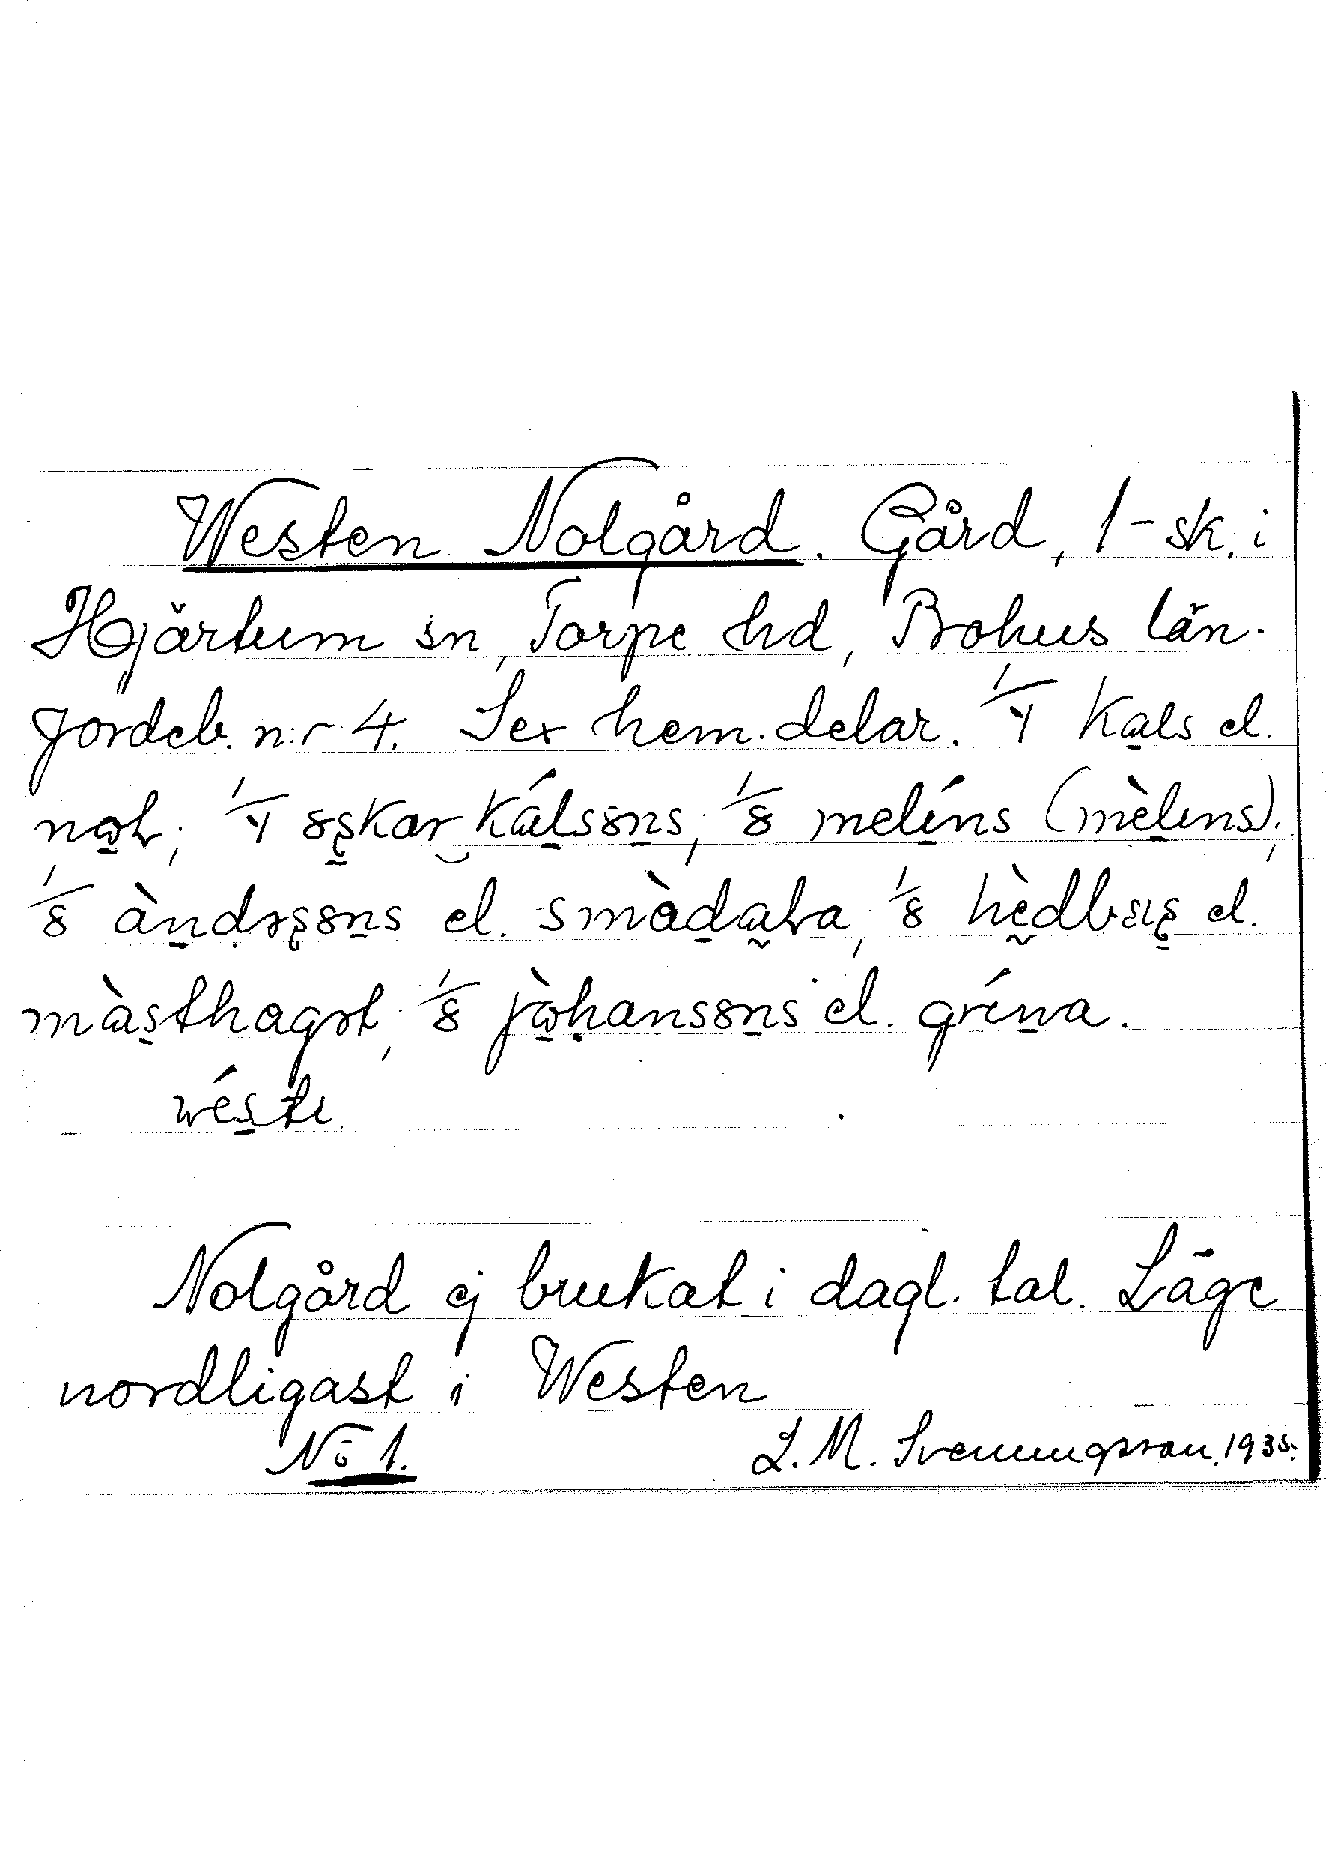 Westen Nolgård. Gård, 1-sk. i
Hjärtum sn, Torpe hd, Bohus län.
Jordeb. nr 4. Sex hem.delar. 1/4 Kals el.
1/4 oskar kálsons, 1/8 melíns (mèlins),
1/8 àndrsons el. 1/8 el.
1/8 el. grína.
wéstı
Nolgård ej brukat i dagl. tal. Läge
nordligast i Westen
No 1. L. M. Svenungsson. 1935.